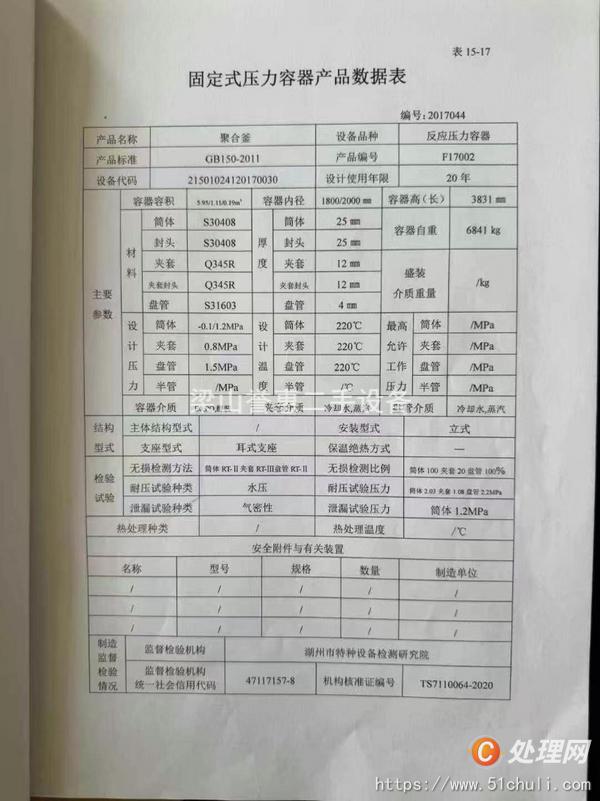 表 15-17
固定式压力容器产品数据表
编号:2017044
产品名称 聚合釜 设备品种 反应压力容器
产品标准 GB150-2011 产品编号 F17002
设备代码 21501024120170030 设计使用年限 20 年
主要参数 容器容积 5.95/1.11/0.19m³ 容器内径 1800/2000 ㎜ 容器高(长) 3831 ㎜
材料 筒体 S30408 厚度 筒体 25 ㎜ 容器自重 6841 kg
封头 S30408 封头 25 ㎜
夹套 Q345R 夹套 12 ㎜ 盛装介质重量 /kg
夹套封头 Q345R 夹套封头 12 ㎜
盘管 S31603 盘管 4 ㎜
设计压力 筒体 -0.1/1.2MPa 设计温度 筒体 220℃ 最高允许工作压力 筒体 /MPa
夹套 0.8MPa 夹套 220℃ 夹套 /MPa
盘管 1.5MPa 盘管 220℃ 盘管 /MPa
半管 /MPa 半管 /℃ 半管 /MPa
容器介质 夹管介质 冷却水,蒸汽 管介质 冷却水,蒸汽
梁山誉惠二手设备
结构型式 主体结构型式 / 安装型式 立式
支座型式 耳式支座 保温绝热方式 —
检验试验 无损检测方法 筒体 RT-Ⅱ夹套 RT-Ⅲ盘管 RT-Ⅱ 无损检测比例 筒体 100 夹套 20 盘管 100%
耐压试验种类 水压 耐压试验压力 筒体 2.03 夹套 1.08 盘管 2.2MPa
泄漏试验种类 气密性 泄漏试验压力 筒体 1.2MPa
热处理种类 / 热处理温度 /℃
安全附件与有关装置
名称 型号 规格 数量 制造单位
/ / / / /
/ / / / /
/ / / / /
制造监督检验情况 监督检验机构 湖州市特种设备检测研究院
监督检验机构统一社会信用代码 47117157-8 机构核准证编号 TS7110064-2020
C 处理网
https://www.51chuli.com/